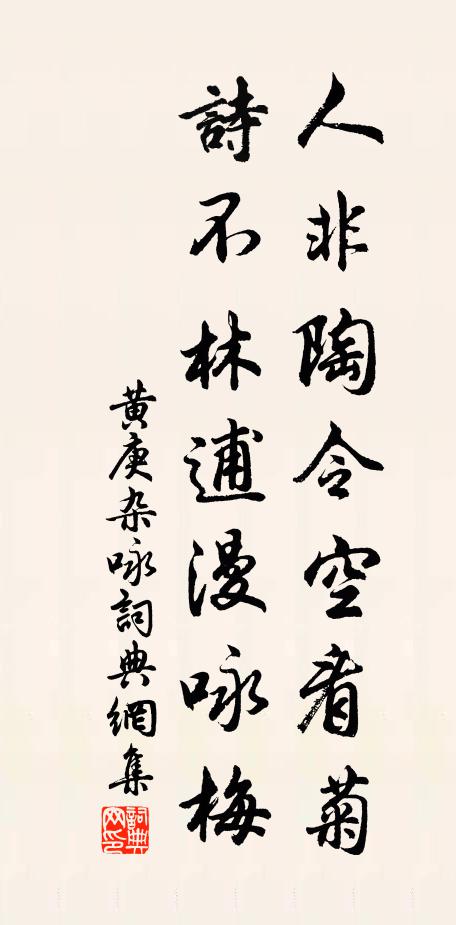 人非陶令空看菊
詩不林逋漫咏梅
黄庚杂咏詞典網集
詞典網印